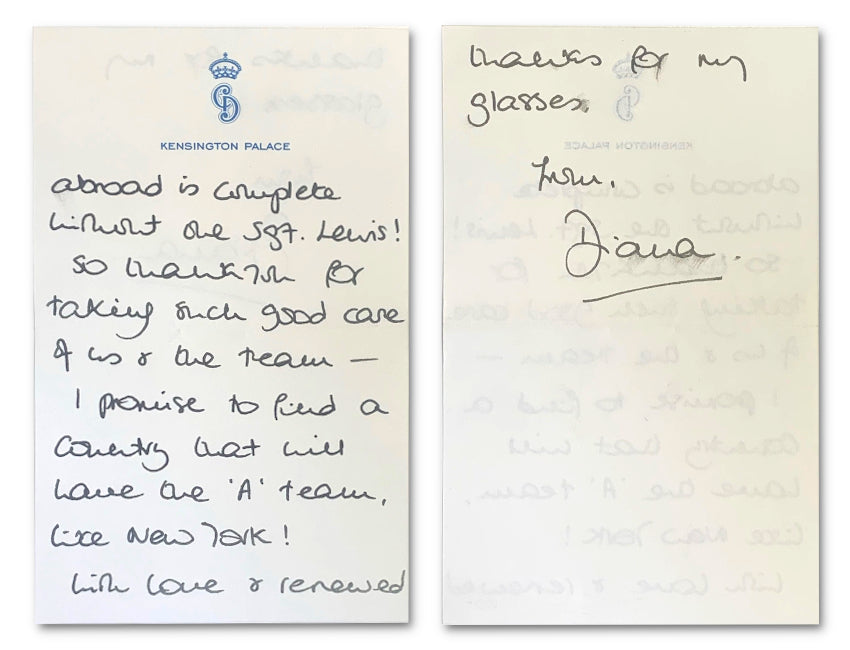 KENSINGTON PALACE
abroad is complete
without the Sgt. Lewis!
So thank you for
taking such good care
of us & the team —
I promise to find a
Country that will
have the 'A' team,
like New York!
With love & renewed
thanks for my
glasses.
from,
Diana.